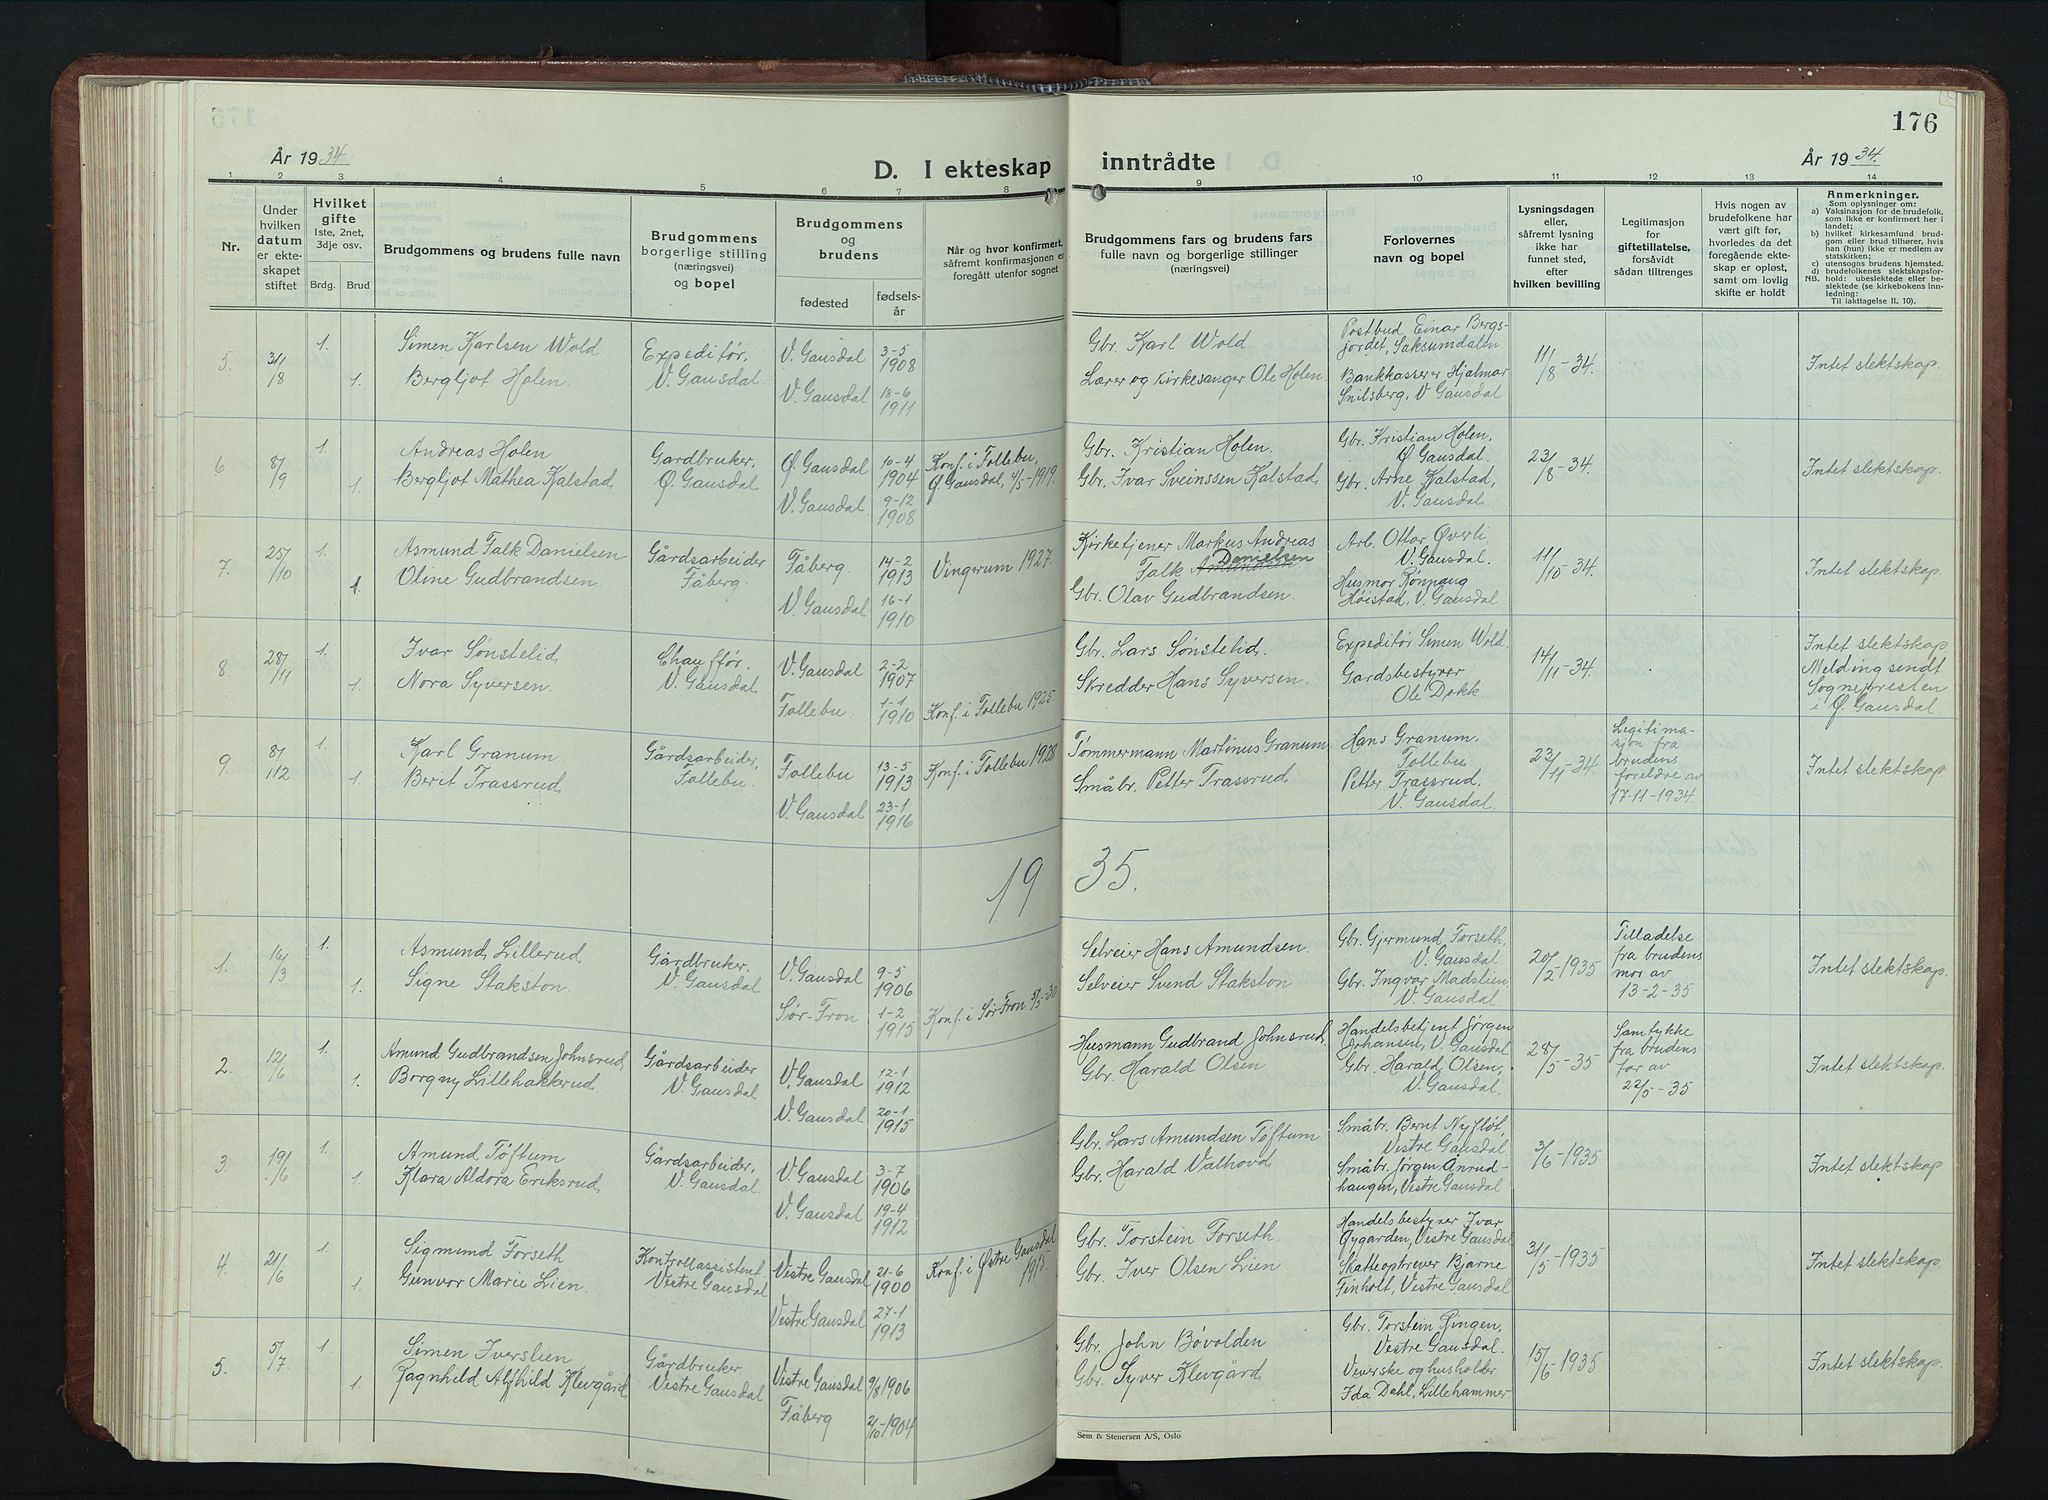 176
År 1934.
D. I ekteskap inntrådte
År 1934.
1 2 3 4 5 6 7 8 9 10 11 12 13 14
Nr.
Under hvilken datum er ekteskapet stiftet
Hvilket gifte 1ste, 2net, 3dje osv.
Brdg. Brud
Brudgommens og brudens fulle navn
Brudgommens borgerlige stilling (næringsvei) og bopel
Brudgommens og brudens
fødested
fødselsår
Når og hvor konfirmert, såfremt konfirmasjonen er foregått utenfor sognet
Brudgommens fars og brudens fars fulle navn og borgerlige stillinger (næringsvei)
Forlovernes navn og bopel
Lysningsdagen eller, såfremt lysning ikke har funnet sted, efter hvilken bevilling
Legitimasjon for giftetillatelse, forsåvidt sådan tiltrenges
Hvis nogen av brudefolkene har vært gift før, hvorledes da det foregående ekteskap er opløst, samt om lovlig skifte er holdt
Anmerkninger.
Som oplysninger om:
a) Vaksinasjon for de brudefolk. som ikke er konfirmert her i landet;
b) hvilket kirkesamfund brudgom eller brud tilhører, hvis han (hun) ikke er medlem av statskirken;
c) utensogns brudens hjemsted.
d) brudefolkenes slektskapsforhold: ubeslektede eller beslektede (se kirkebokens innledning:
NB.
Til iakttagelse II. 10).
5. 31/8 1. Simen Karlsen Wold
1. Bergljot Holen.
Expeditør, V. Gausdal.
V. Gausdal 3-5 1908
V. Gausdal 18-6 1911
Gbr. Karl Wold
Lærer og kirkesanger Ole Holen.
Postbud Einar Bergsjordet, Saksumdalen
Bankkasserer Hjalmar Snilsberg, V Gausdal
11/8 - 34.
Intet slektskap.
6 8/9 1. Andreas Holen
1. Bergljot Mathea Kalstad.
Gardbruker, Ø. Gausdal
Ø. Gausdal 10-4 1904
V. Gausdal 9-12 1908
Konf. i Follebu, Ø. Gausdal, 4/5-1919.
Gbr. Kristian Holen.
Gbr. Ivar Sveinssen Kalstad,
Gbr. Kristian Holen, Ø. Gausdal.
Gbr. Arne Kalstad, V. Gausdal.
23/8 - 34.
Intet slektskap.
7. 25/10 1. Asmund Falk Danielsen
1. Oline Gudbrandsen.
Gårdsarbeider Fåberg.
Fåberg. 14-2 1913
V. Gausdal 16-1 1910
Vingerum 1927.
Kirketjener Markus Andreas Falk Danielsen
Gbr. Olav Gudbrandsen.
Arb. Ottar Øverli, V. Gausdal.
Husmor Rønnaug Høistad, V. Gausdal
11/10 - 34.
Intet slektskap.
8 28/11 1. Ivar Sønstelid
1. Nora Syversen.
Chauffør, V. Gausdal
V. Gausdal 2-2 1907
Follebu. 1-1 1910
Konf. i Follebu 1925.
Gbr. Lars Sønstelid.
Skredder Hans Syversen.
Expeditør Simen Wold
Gardsbestyrer Ole Dokk.
14/11 - 34.
Intet slektskap.
Melding sendt Sognepresten i Ø. Gausdal.
9. 8/12 1. Karl Granum
1. Berit Trassrud
Gårdsarbeider, Follebu.
Follebu 13-5 1913
V. Gausdal 23-1 1916
Konf. i Follebu 1928
Tømmermann Martinus Granum
Småbr. Petter Trassrud
Hans Granum, Follebu
Petter Trassrud, V. Gausdal.
23/11 - 34.
Legitimasjon fra brudens foreldre av 17-11-1934.
Intet slektskap
19 35.
1. 16/3 1. Asmund Lillerud
1. Signe Stakston.
Gårdbruker, V. Gausdal
V. Gausdal 9-5 1906
Sør-Fron 1-2 1915
Konf. i Sør Fron -30
Selveier Hans Amundsen.
Selveier Svend Stakston
Gbr. Gjermund Forseth, V. Gausdal
Gbr. Ingvar Madslien V. Gausdal
20/2 - 1935
Tilladelse fra brudens mor av 13-2-35
Intet slektskap.
2. 12/6 1. Amund Gudbrandsen Johnsrud.
1. Borgny Lillehakkerud
Gårdsarbeider V. Gausdal
V. Gausdal 12-1 1912
V. Gausdal 20-1 1915
Husmann Gudbrand Johnsrud.
Gbr. Harald Olsen
Handelsbetjent Jørgen Ørhansen, V. Gausdal
Gbr. Harald Olsen, V. Gausdal
28/5 - 35
Samtykke fra brudens far av 22/5 - 35
Intet slektskap.
3. 19/6 1. Amund Tøftum
1. Klara Aldora Eriksrud
Gårdsarbeider, V. Gausdal.
V. Gausdal 3-7 1906
V. Gausdal 19-4 1912
Gbr. Lars Amundsen Tøftum
Gbr. Harald Valhovd
Småbr. Bernt Nyfløt, Vestre Gausdal
Småbr. Jørgen Anrudhaugen, Vestre Gausdal
3/6 - 1935
Intet slektskap.
4. 21/6 1. Sigmund Forseth
1. Gunvor Marie Lien.
Kontrollassistent Vestre Gausdal
Vestre Gausdal 21-6 1900
Vestre Gausdal 27-1 1913
Konf. i Østre Gausdal 1915.
Gbr. Torstein Forseth.
Gbr. Iver Olsen Lien
Handelsbestyrer Ivar Øygarden, Vestre Gausdal
Skatteoptrever Bjarne Finholt, Vestre Gausdal
31/5 - 1935
Intet slektskap.
5. 5/7 1. Simen Iverslien
1. Ragnhild Alfhild Klevgård
Gårdbruker Vestre Gausdal
Vestre Gausdal 9/8 1906
Fåberg 2/10 - 1904
Gbr. John Bøvolden
Gbr. Syver Klevgård
Gbr. Torstein Ringen, Vestre Gausdal.
Veverske og husholder Ida Dahl, Lillehammer
15/6 - 1935
Intet slektskap.
Sem & Stenersen A/S, Oslo